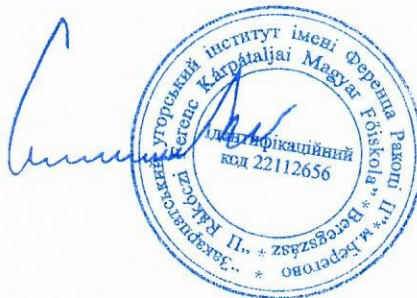 "Закарпатський угорський інститут імені Ференца Ракоці ІІ" * м.Берегово *
"II Rákóczi Ferenc Kárpátaljai Magyar Főiskola" * Beregszász *
ідентифікаційний
код 22112656